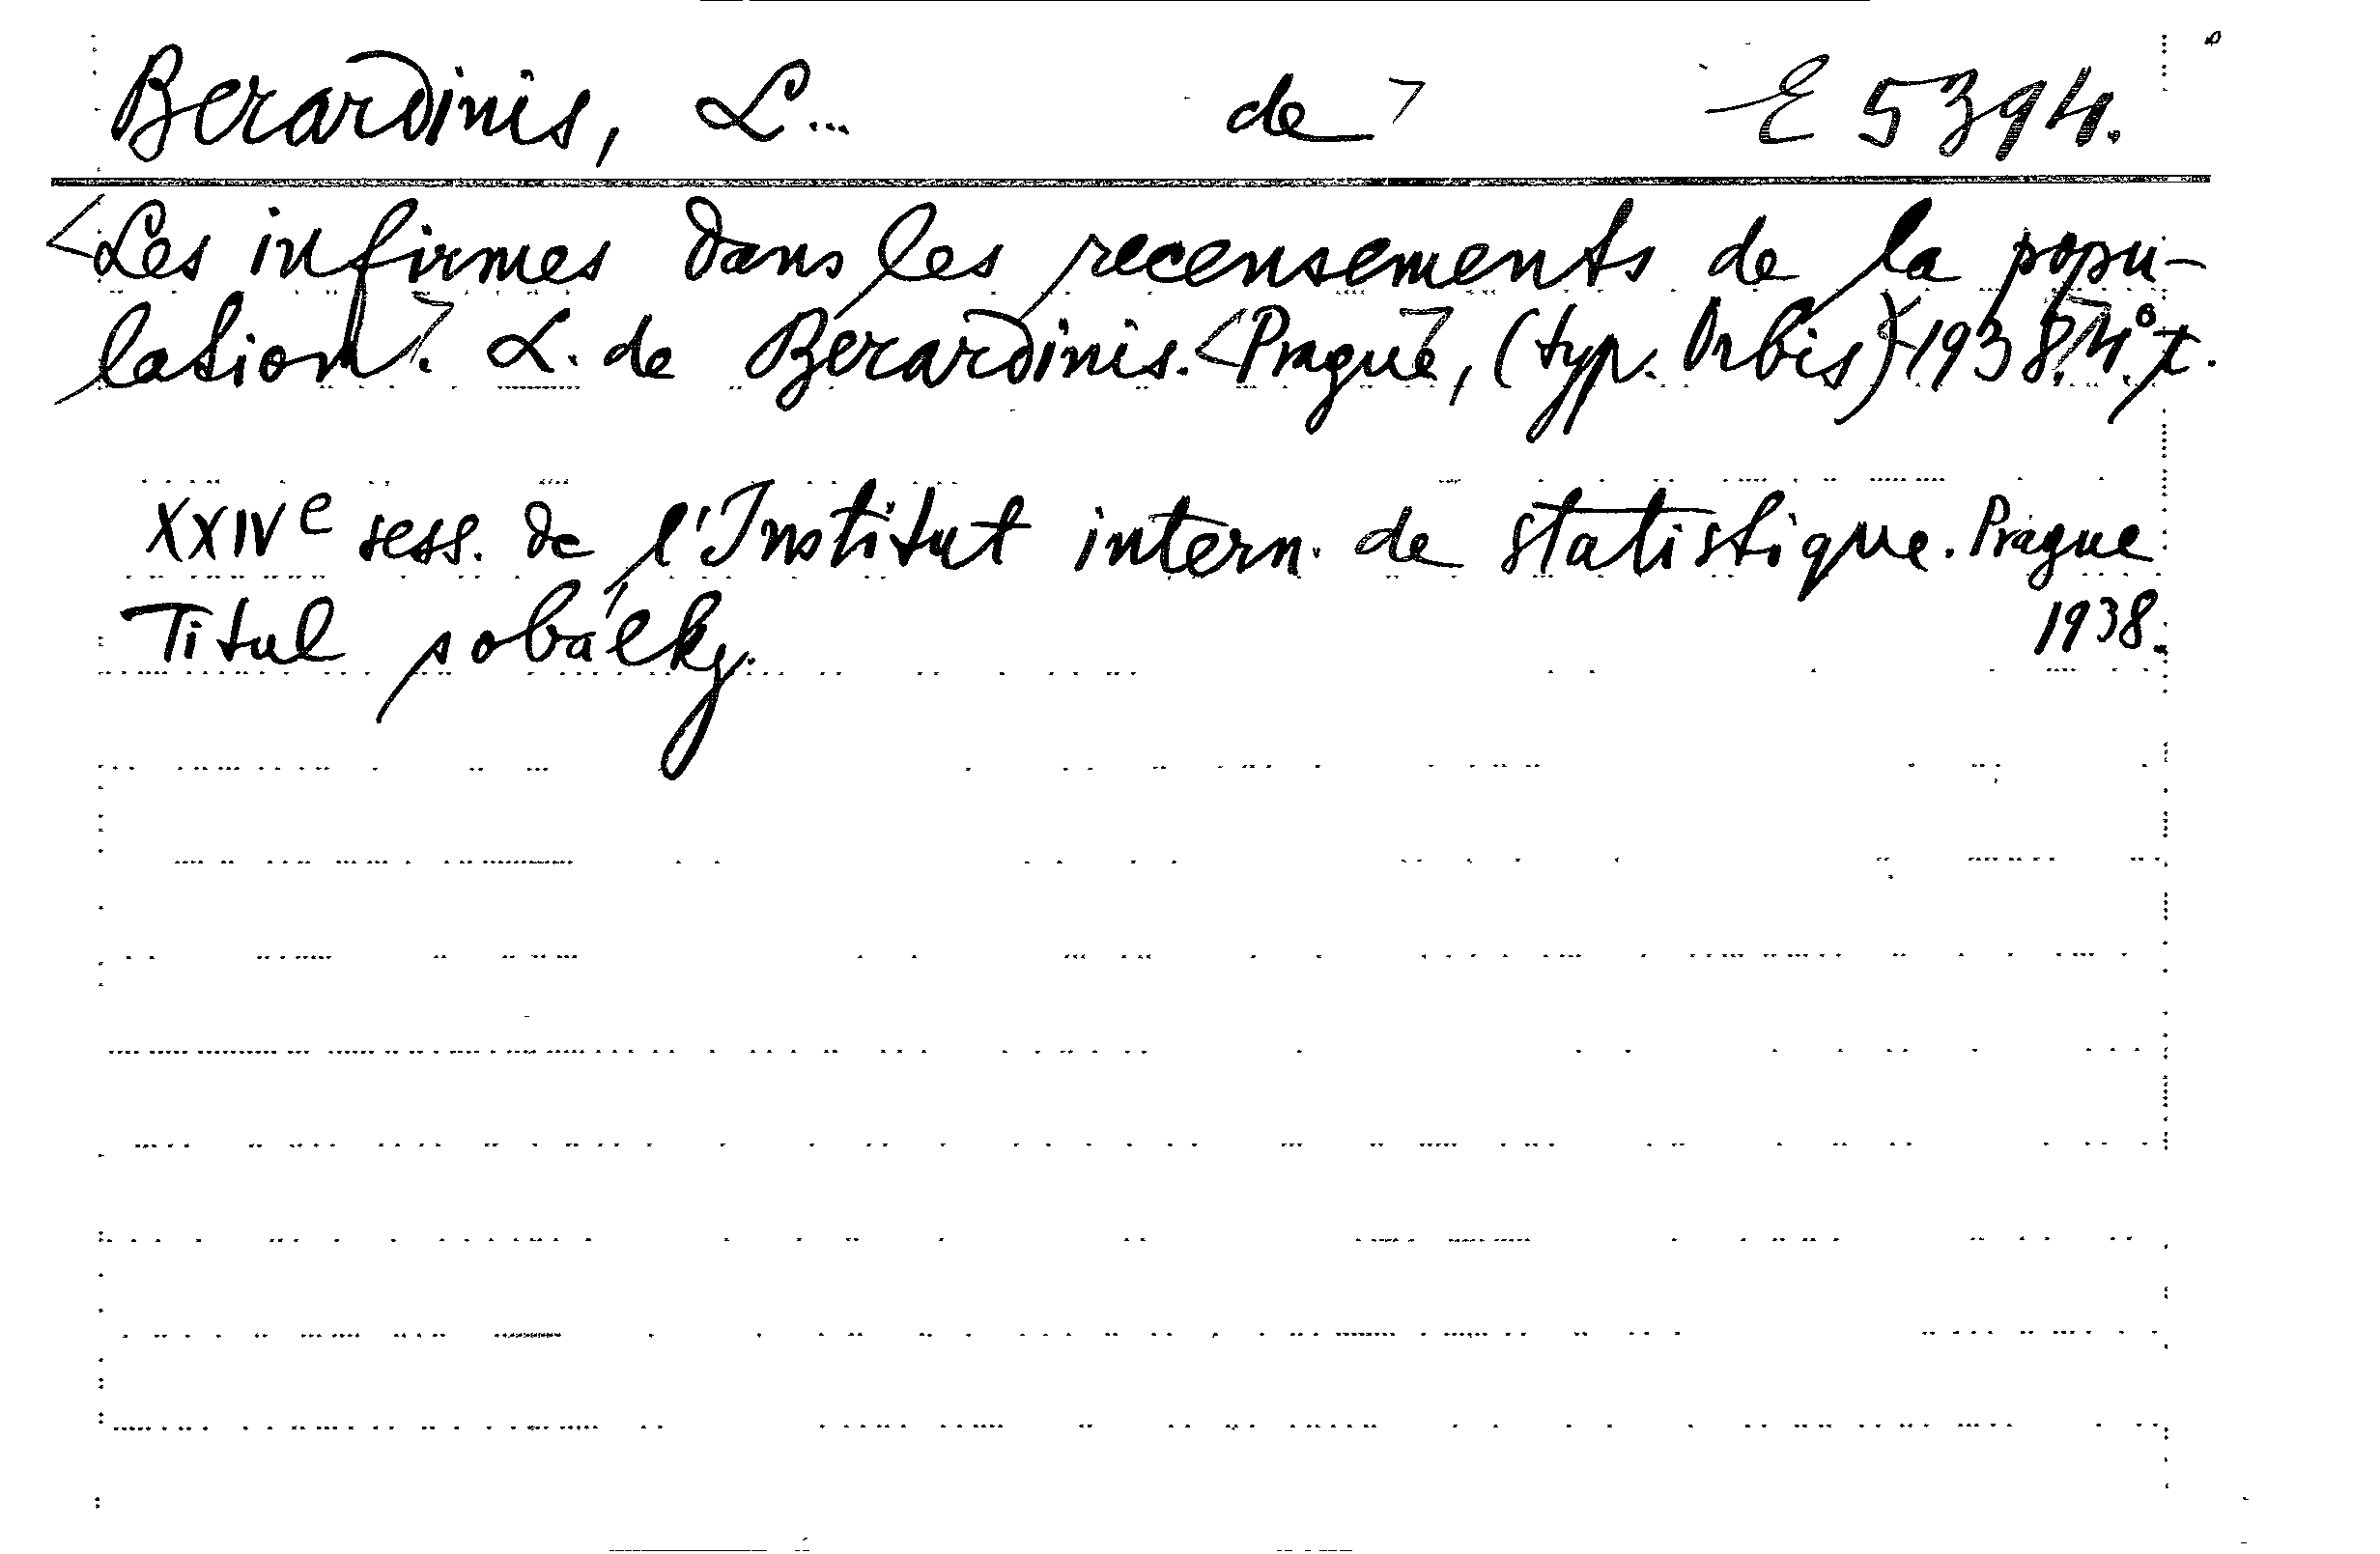 Berardinis, L... de> E 5394.
<Les infirmes dans les recensements de la popu-
lation>. L. de Berardinis. <Prague>, (typ. Orbis) <1938>. 4°.
XXIVe sess. de l'Institut intern. de statistique. Prague
1938.
Titul s obálky.